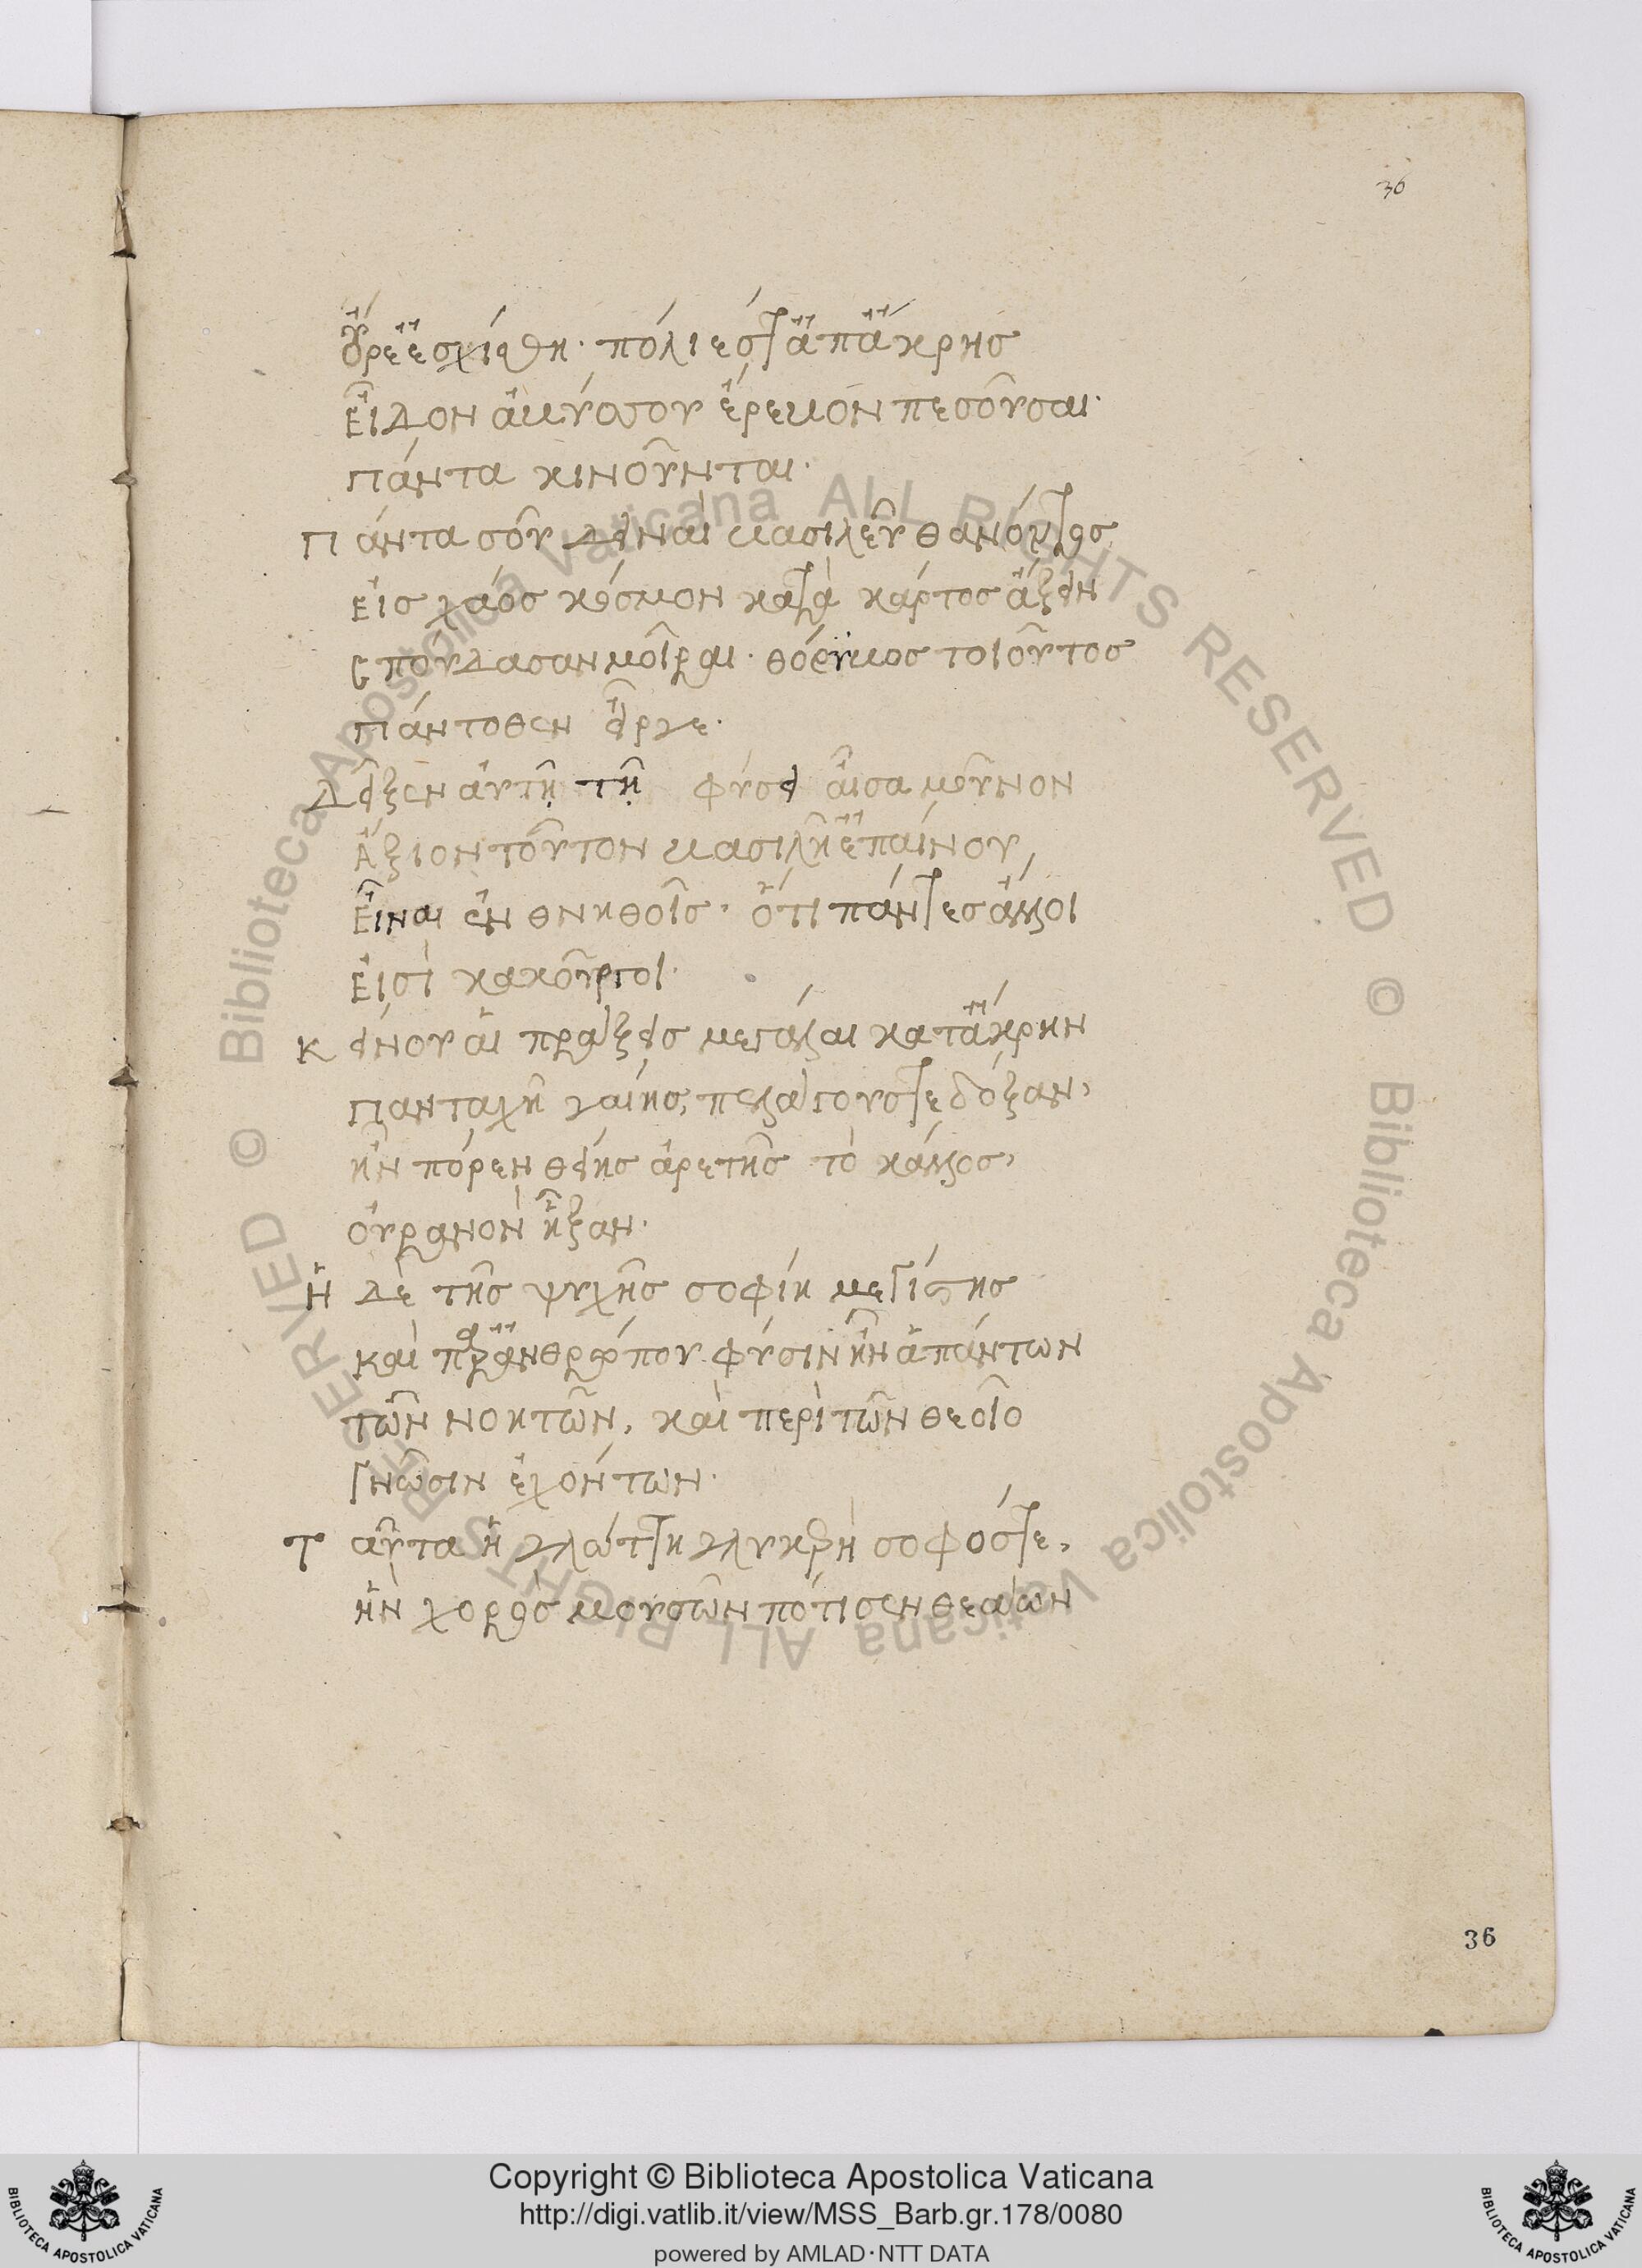 36
οὔρεε σχίσθη· πόλιές τ' ἀπ' ἄκρης
εἶδον ἀβύσσου ἔρεβον πεσοῦσαι·
πάντα κινοῦνται·
Πάντα σοῦ δεῖναὶ βασιλεῦ θανόντος
εἰς χάος κόσμον κατὰ κάρτος ἄξειν
σπούδασαν μοῖραι· θόρυβος τοιοῦτος
πάντοθεν εἶργε·
Δεῖξεν αὐτῇ τῇ φύσει αἶσα μοῦνον
ἄξιον τοῦτον βασιλῆ ἐπαίνου
εἶναι ἐν θνηθοῖς, ὅτι πάντες ἄλλοι
εἰσὶ κακοῦργοι·
Κείνου αἱ πράξεις μεγάλαι κατ' ἄκρην
πανταχῆ γαίης, πελάγους τε δόξαν,
ἣν πόρεν θείης ἀρετῆς τὸ κάλλος,
οὐρανὸν ἧξαν·
Ἡ δὲ τῆς ψυχῆς σοφίη μεγίστης
καὶ παρ' ἀνθρώπου φύσιν ἦν ἁπάντων
τῶν νοητῶν, καὶ περὶ τῶν θεοῖο
γνῶσιν ἐχόντων·
Ταῦτα ἡ γλώττη γλυκρὴ σοφός τε,
ἣν χορὸς μουσῶν πότισεν θεάων
36
Copyright © Biblioteca Apostolica Vaticana
http://digi.vatlib.it/view/MSS_Barb.gr.178/0080
powered by AMLAD·NTT DATA
BIBLIOTECA APOSTOLICA VATICANA
BIBLIOTECA APOSTOLICA VATICANA
Biblioteca Apostolica Vaticana ALL RIGHTS RESERVED ©
Biblioteca Apostolica Vaticana ALL RIGHTS RESERVED ©